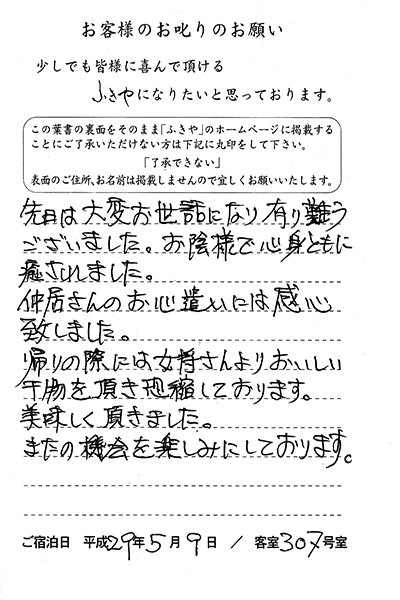 お客様のお叱りのお願い
少しでも皆様に喜んで頂ける
ふきやになりたいと思っております。
この葉書の裏面をそのまま「ふきや」のホームページに掲載する
ことにご了承いただけない方は下記に丸印をして下さい。
「了承できない」
表面のご住所、お名前は掲載しませんので宜しくお願いいたします。
先日は大変お世話になり有り難う
ございました。お陰様で心身ともに
癒されました。
仲居さんのお心遣いには感心
致しました。
帰りの際には女将さんよりおいしい
干物を頂き恐縮しております。
美味しく頂きました。
またの機会を楽しみにしております。
ご宿泊日 平成29年5月9日 / 客室307号室